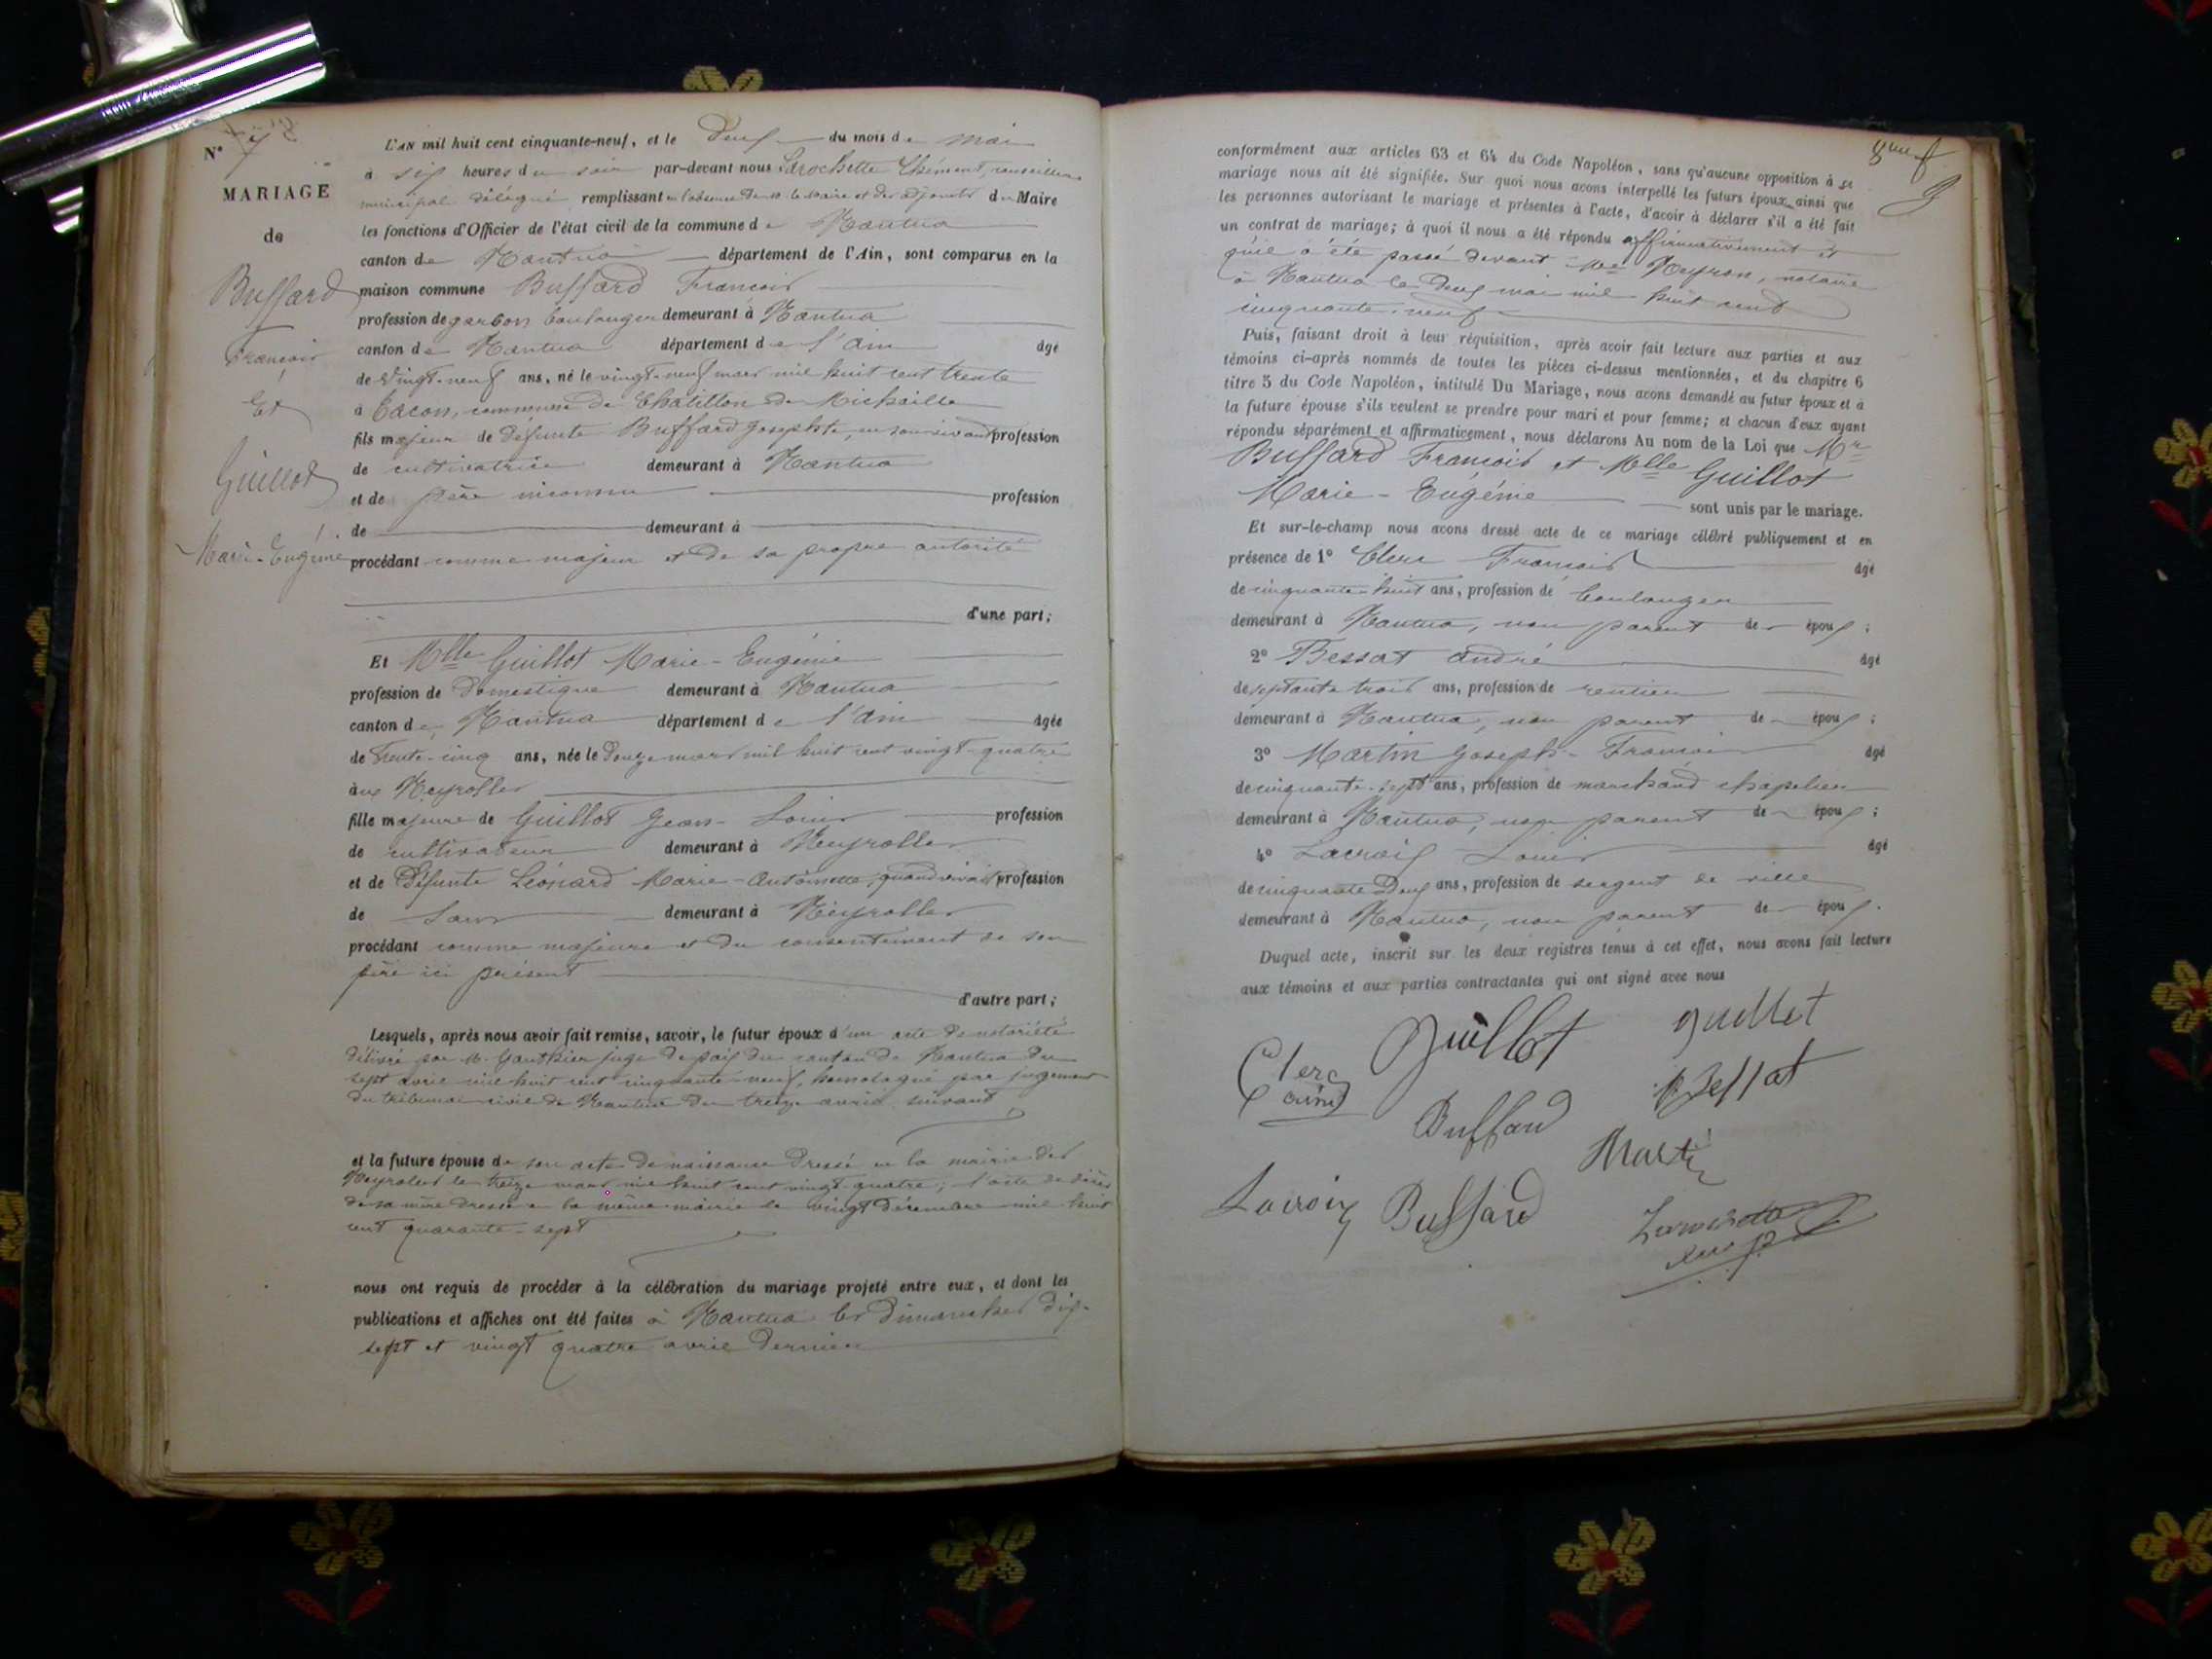 N° 7
MARIAGE
de
Buffard
François
Et
Guillot
Marie-Eugénie
L'AN mil huit cent cinquante-neuf, et le Deux du mois de mai
à six heures du soir par-devant nous Larochette Clément, conseiller
municipal délégué remplissant en l'absence de M. le Maire et des adjoints du Maire
les fonctions d'Officier de l'état civil de la commune de Nantua
canton de Nantua département de l'Ain, sont comparus en la
maison commune Buffard François
profession de garçon boulanger demeurant à Nantua
canton de Nantua département de l'ain âgé
de Vingt-neuf ans, né le vingt-neuf mars mil huit cent trente
à Cacon, commune de Chatillon de Michaille
fils majeur de défunte Buffard Josephte, en son vivant profession
de cultivatrice demeurant à Nantua
et de père inconnu profession
de demeurant à
procédant comme majeur et de sa propre autorité
d'une part;
Et Mlle Guillot Marie-Eugénie
profession de Domestique demeurant à Nantua
canton de Nantua département de l'ain âgée
de Trente-cinq ans, née le Douze mars mil huit cent vingt-quatre
aux Neyrolles
fille majeure de Guillot Jean-Louis profession
de cultivateur demeurant à Neyrolles
et de Défunte Léonard Marie-Antoinette, quand vivait profession
de Sans demeurant à Neyrolles
procédant comme majeure et du consentement de son
père ici présent
d'autre part;
Lesquels, après nous avoir fait remise, savoir, le futur époux d'un acte de notoriété
délivré par M. Gauthier juge de paix du canton de Nantua du
sept avril mil huit cent cinquante-neuf, homologué par jugement
du tribunal civil de Nantua du treize avril suivant
et la future épouse de son acte de naissance Dressé en la mairie des
Neyrolles le treize mars mil huit cent vingt-quatre; l'acte de décès
de sa mère dressé en la même mairie le vingt décembre mil huit
cent quarante-sept
nous ont requis de procéder à la célébration du mariage projeté entre eux, et dont les
publications et affiches ont été faites à Nantua les Dimanches dix-
sept et vingt quatre avril dernier
9
conformément aux articles 63 et 64 du Code Napoléon, sans qu'aucune opposition à ce
mariage nous ait été signifiée. Sur quoi nous avons interpellé les futurs époux ainsi que
les personnes autorisant le mariage et présentes à l'acte, d'avoir à déclarer s'il a été fait
un contrat de mariage; à quoi il nous a été répondu affirmativement et
qu'il a été passé devant Me Neyron, notaire
à Nantua le Deux mai mil huit cent
cinquante-neuf
Puis, faisant droit à leur réquisition, après avoir fait lecture aux parties et aux
témoins ci-après nommés de toutes les pièces ci-dessus mentionnées, et du chapitre 6
titre 5 du Code Napoléon, intitulé Du Mariage, nous avons demandé au futur époux et à
la future épouse s'ils veulent se prendre pour mari et pour femme; et chacun d'eux ayant
répondu séparément et affirmativement, nous déclarons Au nom de la Loi que Mr
Buffard François et Melle Guillot
Marie-Eugénie sont unis par le mariage.
Et sur-le-champ nous avons dressé acte de ce mariage célébré publiquement et en
présence de 1° Clerc François âgé
de cinquante-huit ans, profession de boulanger
demeurant à Nantua, non parent des époux;
2° Bessat andré âgé
de septante trois ans, profession de rentier
demeurant à Nantua, non parent des époux;
3° Martin Joseph-François âgé
de cinquante-sept ans, profession de marchand chapelier
demeurant à Nantua, non parent des époux;
4° Lacroix Louis âgé
de cinquante Deux ans, profession de sergent de ville
demeurant à Nantua, non parent des époux.
Duquel acte, inscrit sur les deux registres tenus à cet effet, nous avons fait lecture
aux témoins et aux parties contractantes qui ont signé avec nous
Guillot guillet
Clerc
ainé
Bessat
Buffard
Martin
Lacroix Buffard
Larochette